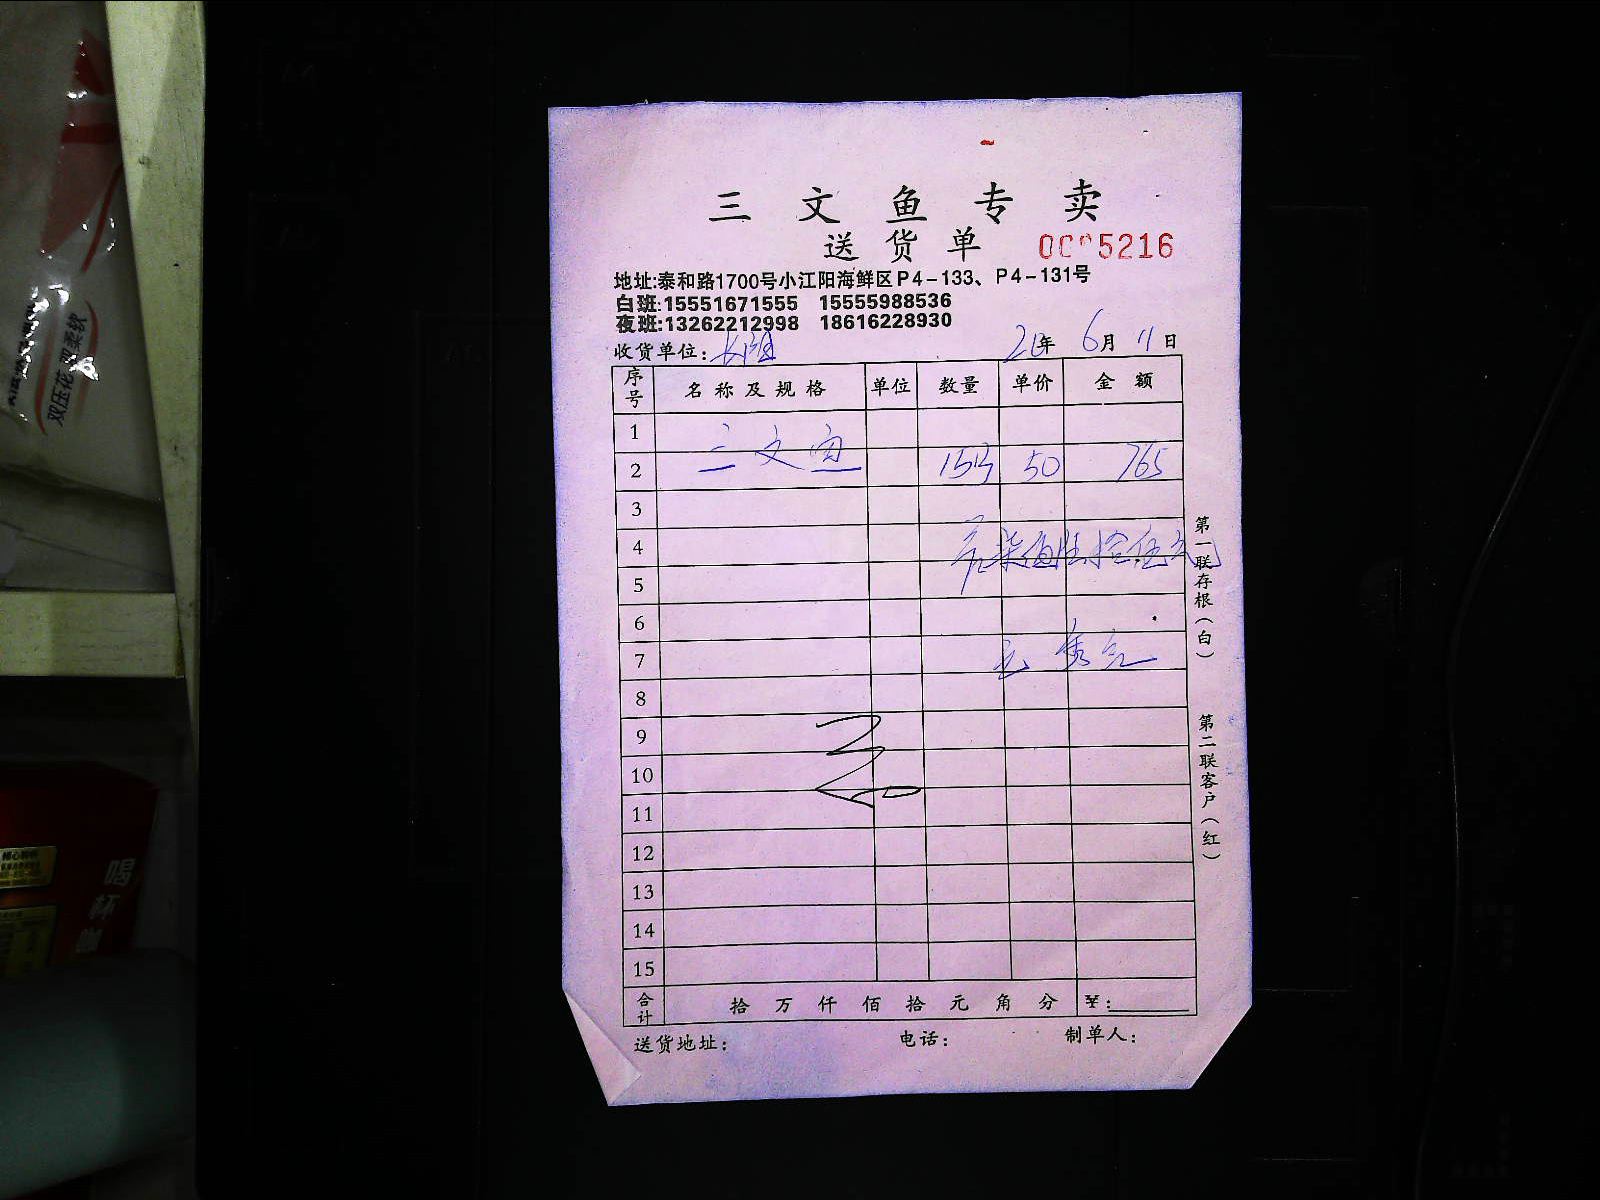 三文鱼专卖
送货单
5216
地址:泰和路1700号小江阳海鲜区P4-133、P4-131号
白班:15551671555 15555988536
夜班:13262212998 18616228930
收货单位: 年 6月 11日
序号 名称及规格 单位 数量 单价 金额
1
2 三文鱼 50 765
3
4
5
6
7
8
9
10
11
12
13
14
15
合计 拾 万 仟 佰 拾 元 角 分 ¥:
送货地址: 电话: 制单人:
第一联存根(白)
第二联客户(红)
双压花 双柔软
喝杯